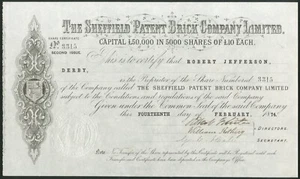 THE SHEFFIELD PATENT BRICK COMPANY LIMITED.
CAPITAL £50,000 IN 5000 SHARES OF £10 EACH.
SHARE CERTIFICATE
No 3315
SECOND ISSUE
This is to certify that ROBERT JEFFERSON,
DERBY,
is the Proprietor of the Share Numbered 3315
of the Company called THE SHEFFIELD PATENT BRICK COMPANY LIMITED
subject to the Conditions and regulations of the said Company
Given under the Common Seal of the said Company
this FOURTEENTH day of FEBRUARY, 1874
DIRECTORS.
SECRETARY.